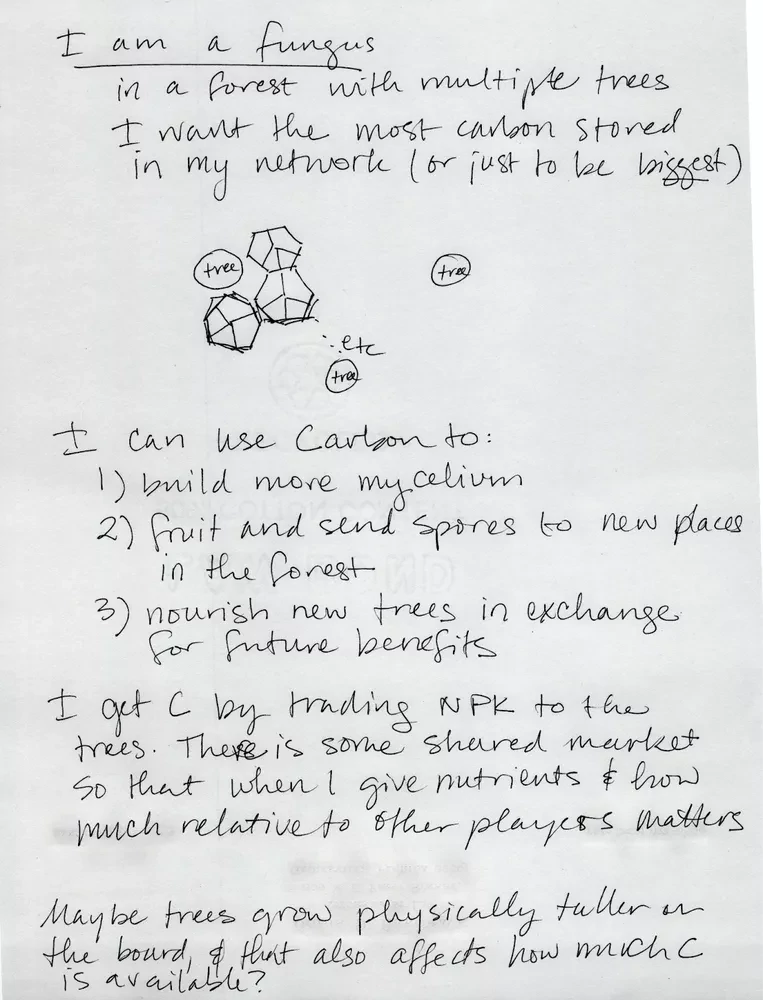 I am a fungus
in a forest with multiple trees
I want the most carbon stored
in my network (or just to be biggest)
tree
tree
...etc
tree
I can use Carbon to:
1) build more mycelium
2) fruit and send spores to new places
in the forest
3) nourish new trees in exchange
for future benefits
I get C by trading NPK to the
trees. There is some shared market
so that when I give nutrients & how
much relative to other players matters
Maybe trees grow physically taller on
the board, & that also affects how much C
is available?